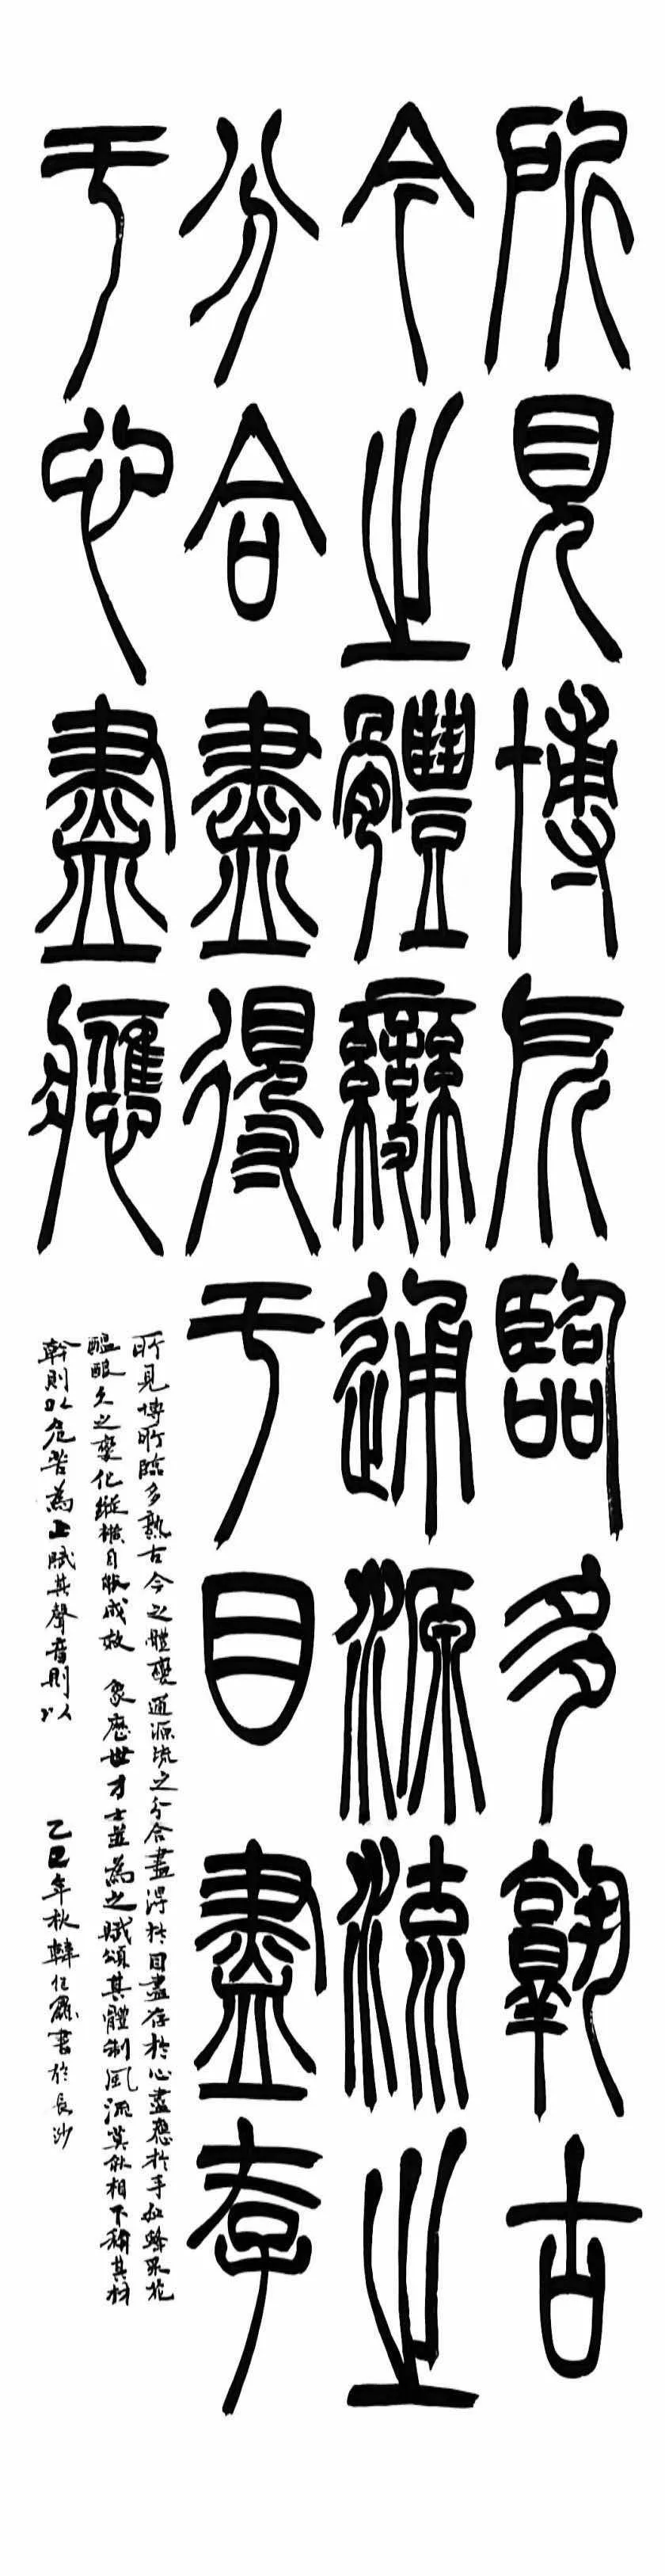 所見博所臨多孰古
今之體變通源流之
分合盡得于目盡存
于心盡應
所見博所臨多熟古今之體變通源流之分合盡得於目盡存於心盡應於手如蜂采花
醞釀久之變化縱橫自能成效 象歷世才士並為之賦頌其體制風流莫能相下稱其材
幹則以危苦為上賦其聲音則以
乙巳年秋韓書於長沙